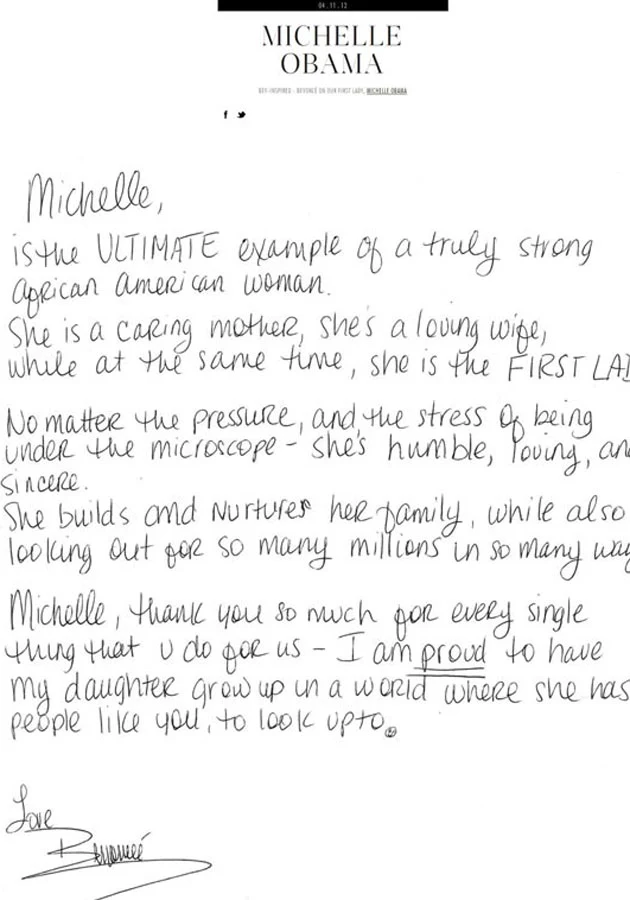 04.11.12
MICHELLE
OBAMA
BEY-INSPIRED - BEYONCÉ ON OUR FIRST LADY, MICHELLE OBAMA
f
Michelle,
is the ULTIMATE example of a truly strong
African American woman.
She is a caring mother, she's a loving wife,
while at the same time, she is the FIRST LAD
No matter the pressure, and the stress of being
under the microscope - she's humble, loving, and
sincere.
She builds and nurtures her family, while also
looking out for so many millions in so many way
Michelle, thank you so much for every single
thing that u do for us - I am proud to have
my daughter grow up in a world where she has
people like you, to look up to.
Love
Beyoncé